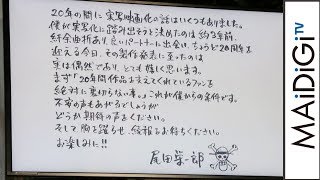 20年の間に実写映画化の話はいくつもありました。
僕が実写化に踏み出そうと決めたのは約3年前、
紆余曲折あり、良いパートナーに出会い、ちょうど20周年を
迎える今日、その製作発表に至ったのは
実は偶然であり、とても嬉しく思います。
まず「20年間作品を支えてくれているファンを
絶対に裏切らない事。」これが僕からの条件です。
不安の声もあがるでしょうが
どうか期待の声をください。
そして胸を躍らせ、続報をお待ちください。
お楽しみに!!
尾田栄一郎
MAiDiGiTV